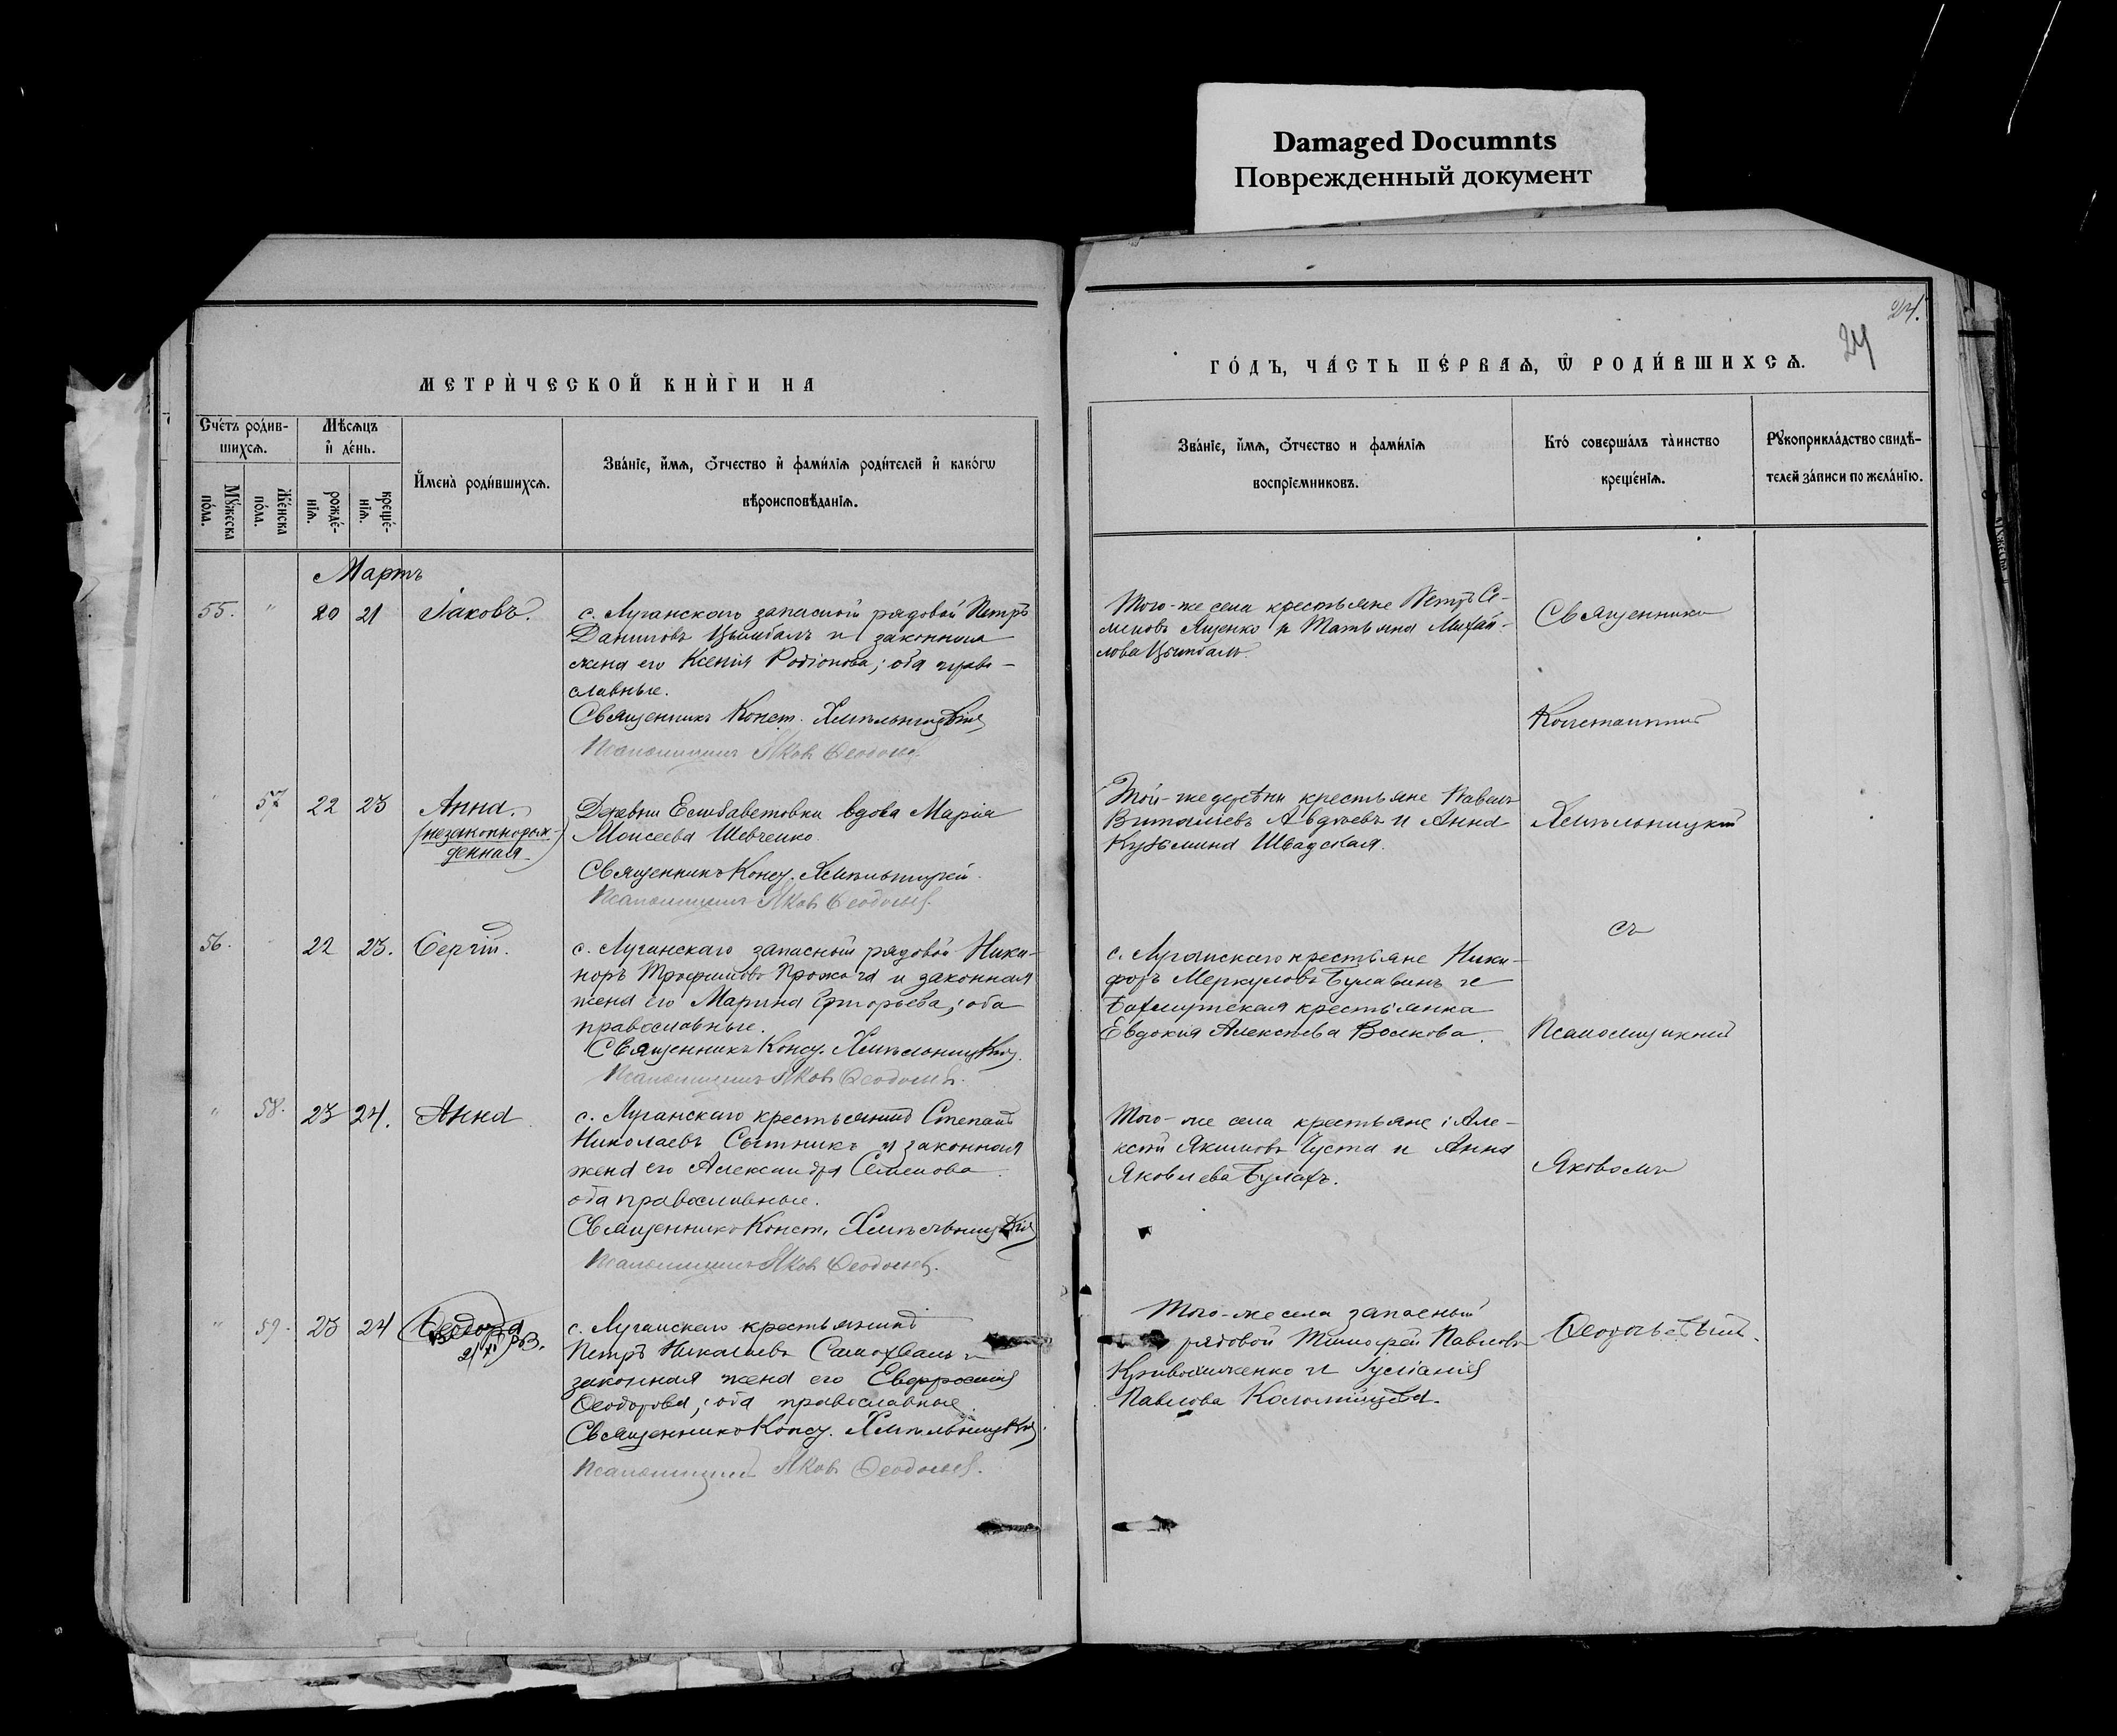 Damaged Documnts
Поврежденный документ
24.
24
МЕТРИ́ЧЕСКОЙ КНИ́ГИ НА
ГО́ДЪ, ЧА́СТЬ ПЕ́РВАѦ, Ѿ РОДИ́ВШИХСѦ.
Сче́тъ роди́в-
шихсѧ.
Мѣ́сѧцъ
и҆ де́нь.
Мꙋ́жеска
по́ла.
Же́нска
по́ла.
рожде́-
нїѧ.
креще́-
нїѧ.
И҆мена̀ роди́вшихсѧ.
Зва́нїе, и҆́мѧ, ѻ҆́тчество и҆ фами́лїѧ роди́телей и҆ како́гѡ
вѣроисповѣ́данїѧ.
Зва́нїе, и҆́мѧ, ѻ҆́тчество и фами́лїѧ
воспрїе́мниковъ.
Кто́ соверша́лъ та̀инство
креще́нїѧ.
Рꙋкоприкла́дство свидѣ́-
телей за́писи по жела́нїю.
Мартъ
55. " 20 21 Іаковъ.
с. Луганскаго запасной рядовой Петръ
Даниловъ Цымбалъ и законная
жена его Ксенія Родіонова; оба право-
славные.
Священникъ Конст. Хмѣльницкій
Псаломщикъ Яковъ Ѳеодосьев.
Того-же села крестьяне Петръ Се-
меновъ Ященко и Татьяна Михай-
лова Цымбалъ.
57 22 23 Анна.
(незаконнорож-
денная)
Деревни Елисаветовки вдова Марія
Моисеева Шевченко.
Священникъ Конст. Хмѣльницкій.
Псаломщикъ Яковъ Ѳеодосьев.
Той-же деревни крестьяне Павелъ
Виталіевъ Авдѣевъ и Анна
Кузьмина Швадская.
56. 22 23. Сергій.
с. Луганскаго запасный рядовой Ника-
норъ Трофимовъ Прожога и законная
жена его Марина Григорьева; оба
православные.
Священникъ Конст. Хмѣльницкій.
Псаломщикъ Яковъ Ѳеодосьев.
с. Луганскаго крестьяне Ники-
форъ Меркуловъ Булавинъ и
Бахмутская крестьянка
Евдокия Алексѣева Волкова.
" 58. 23 24. Анна
с. Луганскаго крестьянинъ Степанъ
Николаевъ Сытникъ и законная
жена его Александра Семенова.
оба православные.
Священникъ Конст. Хмѣльницкій
Псаломщикъ Яковъ Ѳеодосьев.
Того-же села крестьяне: Але-
ксѣй Якимовъ Чуста и Анна
Яковлева Булахъ.
" 59. 23 24 Ѳеодора
с. Луганскаго крестьянинъ
Петръ Николаевъ Самохвалъ и
законная жена его Евфросинія
Ѳеодорова; оба православные.
Священникъ Конст. Хмѣльницкій.
Псаломщикъ Яковъ Ѳеодосьев.
Того-же села запасный
рядовой Тимофей Павловъ
и Іуліанія
Павлова Коломійцева.
Священникъ
Константинъ
Хмѣльницкій
съ
Псаломщикомъ
Яковомъ
Ѳеодосьевымъ.